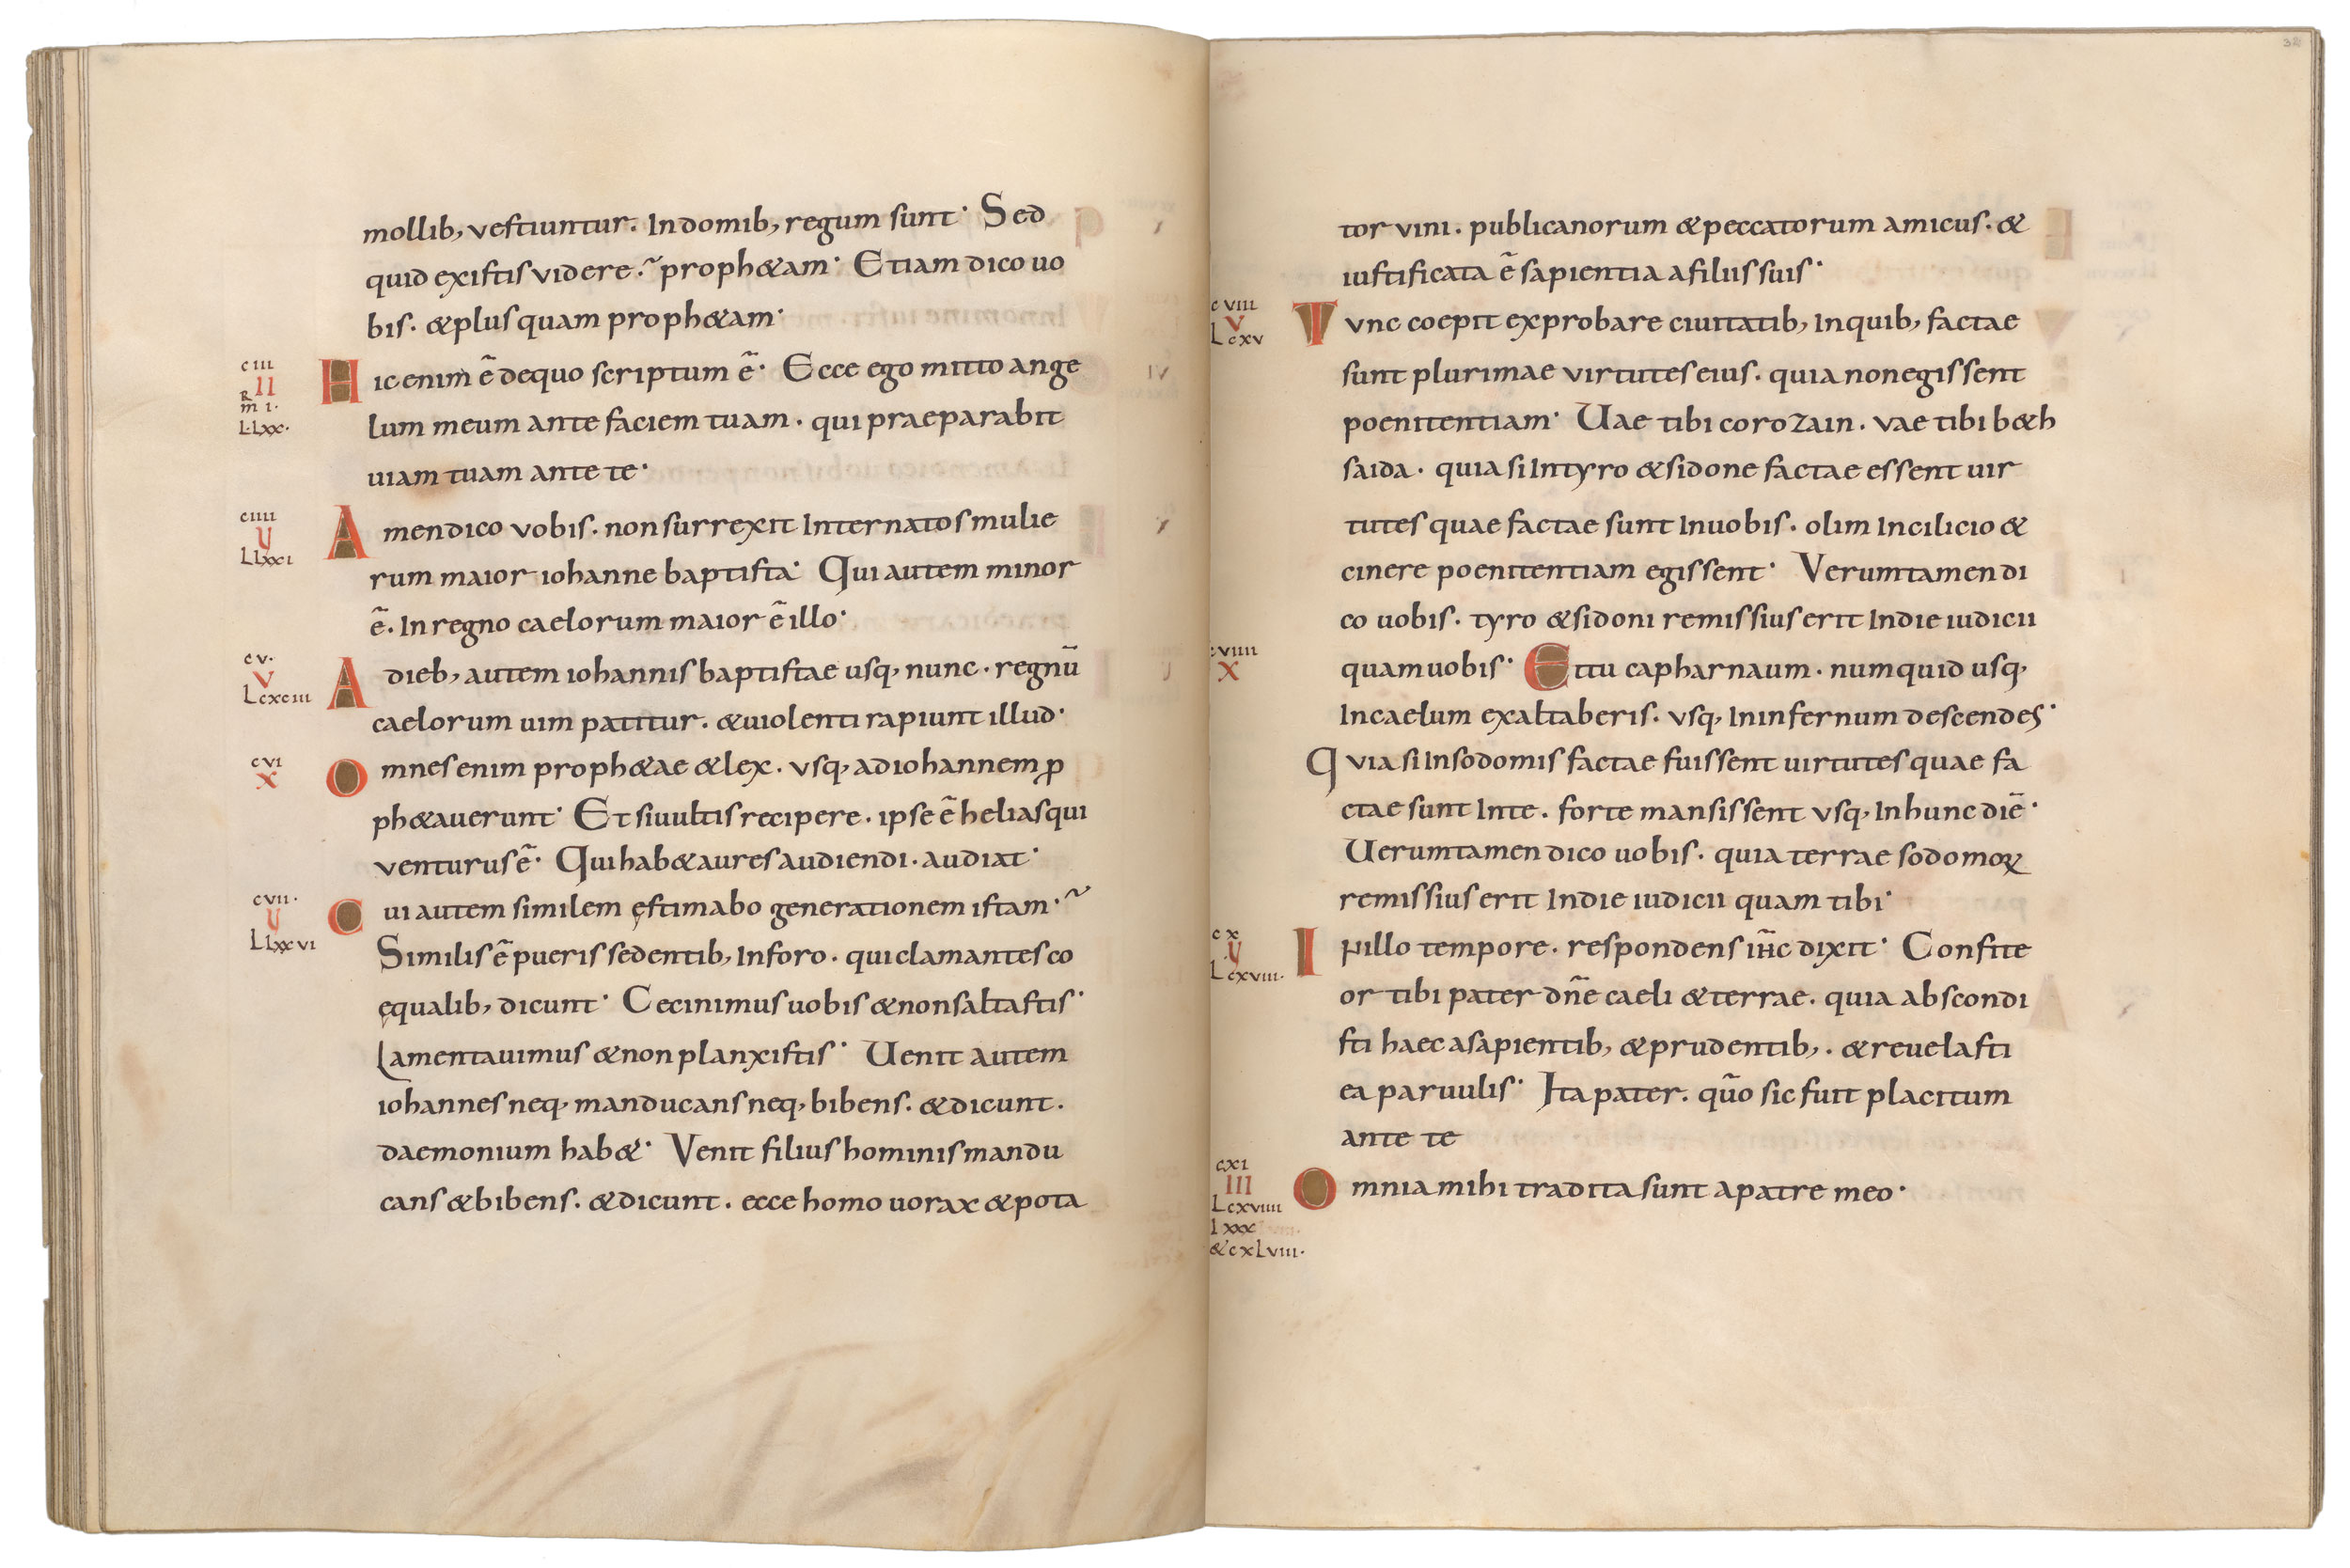 mollib, vestiuntur. In domib, regum sunt· Sed
quid existis videre.~ proph&am· Etiam dico uo
bis. &plus quam proph&am·
ciii
II
R
m̄ i.
L·Lxx·
Hic enim ē de quo scriptum ē· Ecce ego mitto ange
lum meum ante faciem tuam. qui praeparabit
uiam tuam ante te·
ciiii
V
LLxxi
Amen dico vobis. non surrexit Inter natos mulie
rum maior iohanne baptista· Qui autem minor
ē. In regno caelorum maior ē illo·
cv.
V
Lcxciii
A dieb, autem iohannis baptistae usq, nunc. regnū
caelorum uim patitur. &uiolenti rapiunt illud·
cvi
X
Omnes enim proph&ae &lex. vsq, ad iohannem ꝓ
ph&auerunt· Et si uultis recipere. ipse ē helias qui
venturus ē· Qui hab& aures audiendi. audiat·
cvii.
V
LLxxvi
Cui autem similem ęstimabo generationem istam·~
Similis ē pueris sedentib, In foro. qui clamantes co
ęqualib, dicunt· Cecinimus uobis &non saltastis·
Lamentauimus &non planxistis· Uenit autem
iohannes neq, manducans neq, bibens. &dicunt.
daemonium hab&· Venit filius hominis mandu
cans &bibens. &dicunt. ecce homo uorax &pota
tor vini. publicanorum &peccatorum amicus. &
iustificata ē sapientia a filiis suis·
cviii
V
Lcxv
Tvnc coepit exprobare ciuitatib, In quib, factae
sunt plurimae virtutes eius. quia non egissent
poenitentiam· Uae tibi corozain. vae tibi b&h
saida. quia si In tyro &sidone factae essent uir
tutes quae factae sunt In uobis. olim In cilicio &
cinere poenitentiam egissent· Verumtamen di
co uobis. tyro &sidoni remissius erit In die iudicii
cviiii
X
quam uobis· Et tu capharnaum. numquid usq,
In caelum exaltaberis. vsq, In infernum descendes·
Qvia si In sodomis factae fuissent uirtutes quae fa
ctae sunt In te. forte mansissent vsq, In hunc diē·
Uerumtamen dico uobis. quia terrae sodomoꝝ
remissius erit In die iudicii quam tibi·
cx
V
Lcxviii.
IN illo tempore. respondens ih̄c dixit· Confite
or tibi pater dn̄e caeli &terrae. quia abscondi
sti haec a sapientib, &prudentib,. &reuelasti
ea paruulis· Ita pater. qūo sic fuit placitum
ante te
cxi
III
Lcxviiii
Lxxx
&cxLviii.
Omnia mihi tradita sunt a patre meo·